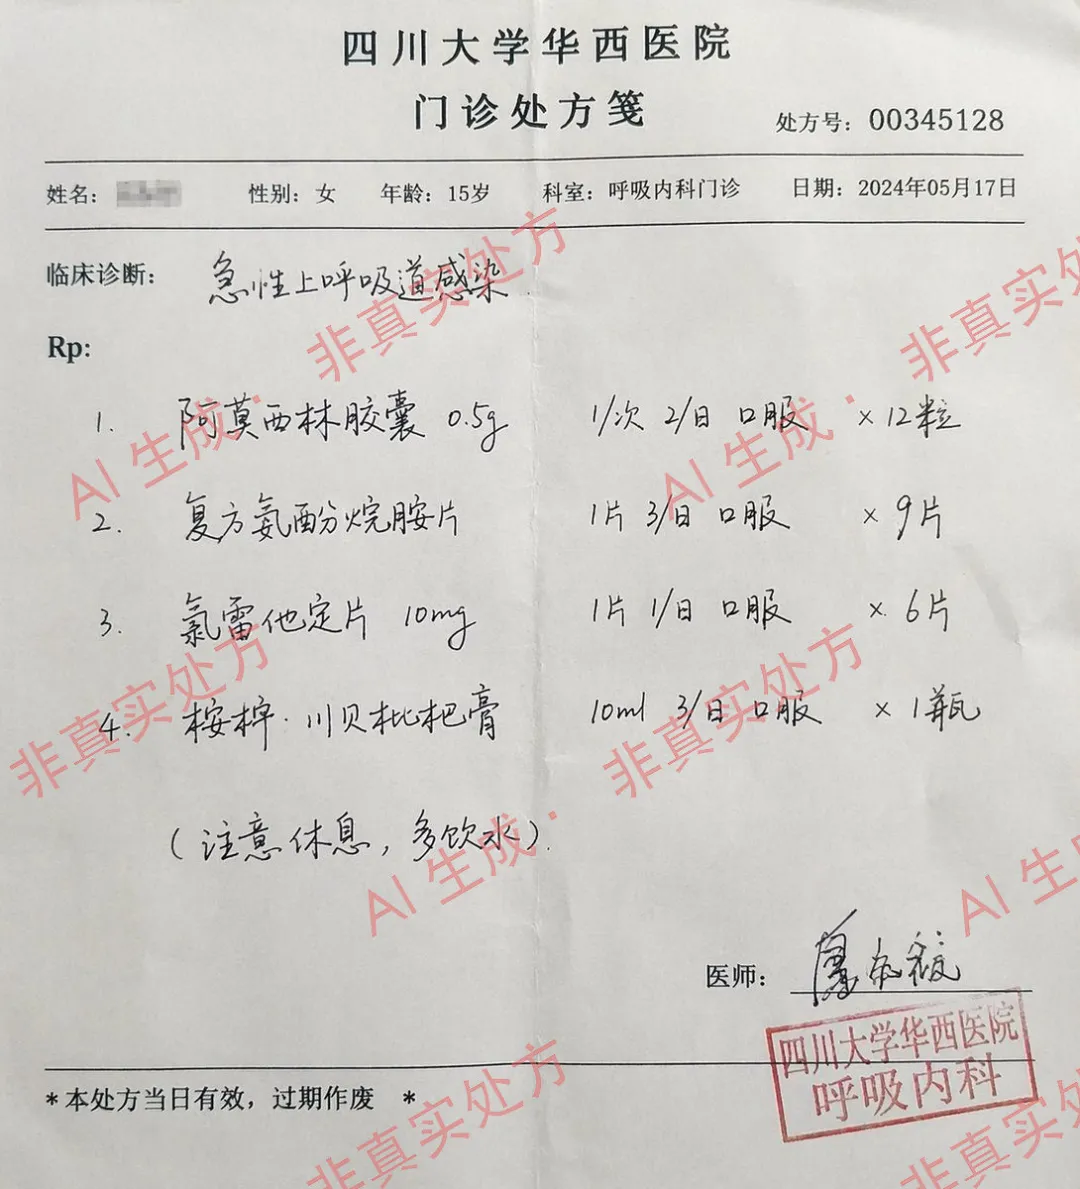 四川大学华西医院
门诊处方笺
处方号：00345128
姓名： 性别：女 年龄：15岁 科室：呼吸内科门诊 日期：2024年05月17日
临床诊断： 急性上呼吸道感染
Rp:
1. 阿莫西林胶囊 0.5g 1/次 2/日 口服 ×12粒
2. 复方氨酚烷胺片 1片 3/日 口服 ×9片
3. 氯雷他定片 10mg 1片 1/日 口服 ×6片
4. 桉柠·川贝枇杷膏 10ml 3/日 口服 ×1瓶
（注意休息，多饮水）.
医师：
四川大学华西医院
呼吸内科
*本处方当日有效，过期作废 *
AI 生成·非真实处方
AI 生成·非真实处方
非真实处方
非真实处方
AI 生成·非真实处方
AI 生成·非真实处方